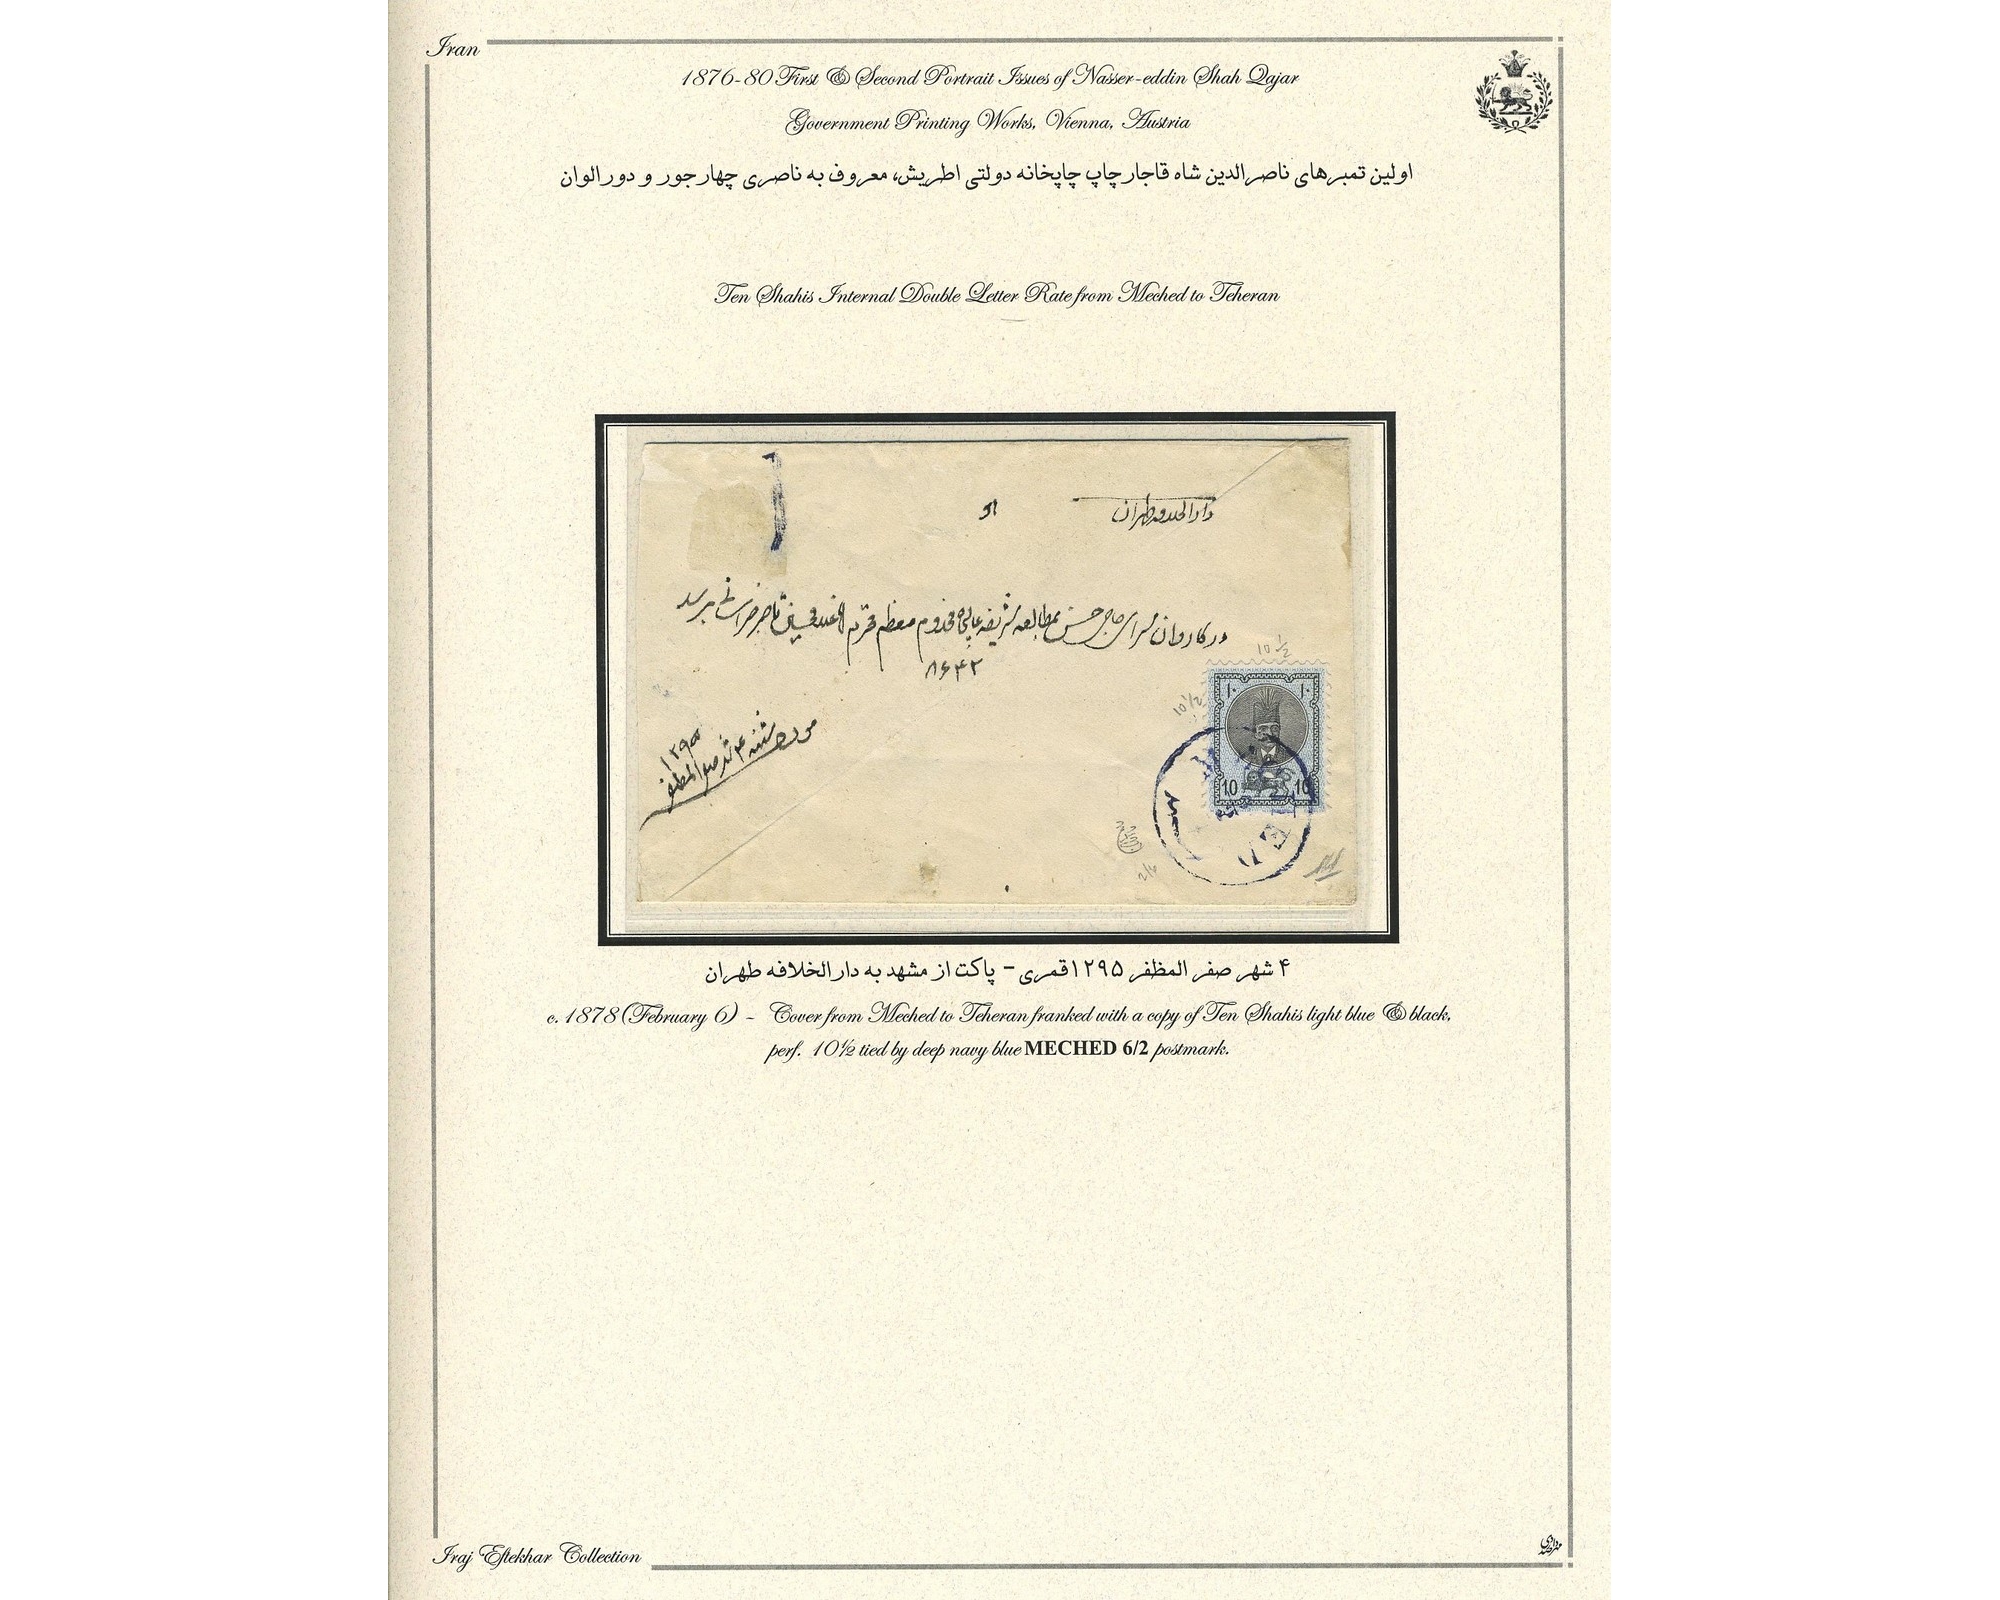 Iran
1876-80 First & Second Portrait Issues of Nasser-eddin Shah Qajar
Government Printing Works, Vienna, Austria
اولین تمبرهای ناصرالدین شاه قاجار چاپ چاپخانه دولتی اطریش، معروف به ناصری چهار جور و دورالوان
Ten Shahis Internal Double Letter Rate from Meched to Teheran
دارالخلافه طهران
در کاروان سرای حاجی حسن بمطالعه شریفه
۸۶۴۲
۱۲۹۵
10½
10½
۱۰ ۱۰
10 10
۴ شهر صفر المظفر ۱۲۹۵ قمری - پاکت از مشهد به دارالخلافه طهران
c. 1878 (February 6) - Cover from Meched to Teheran franked with a copy of Ten Shahis light blue & black,
perf. 10½ tied by deep navy blue MECHED 6/2 postmark.
Iraj Eftekhar Collection